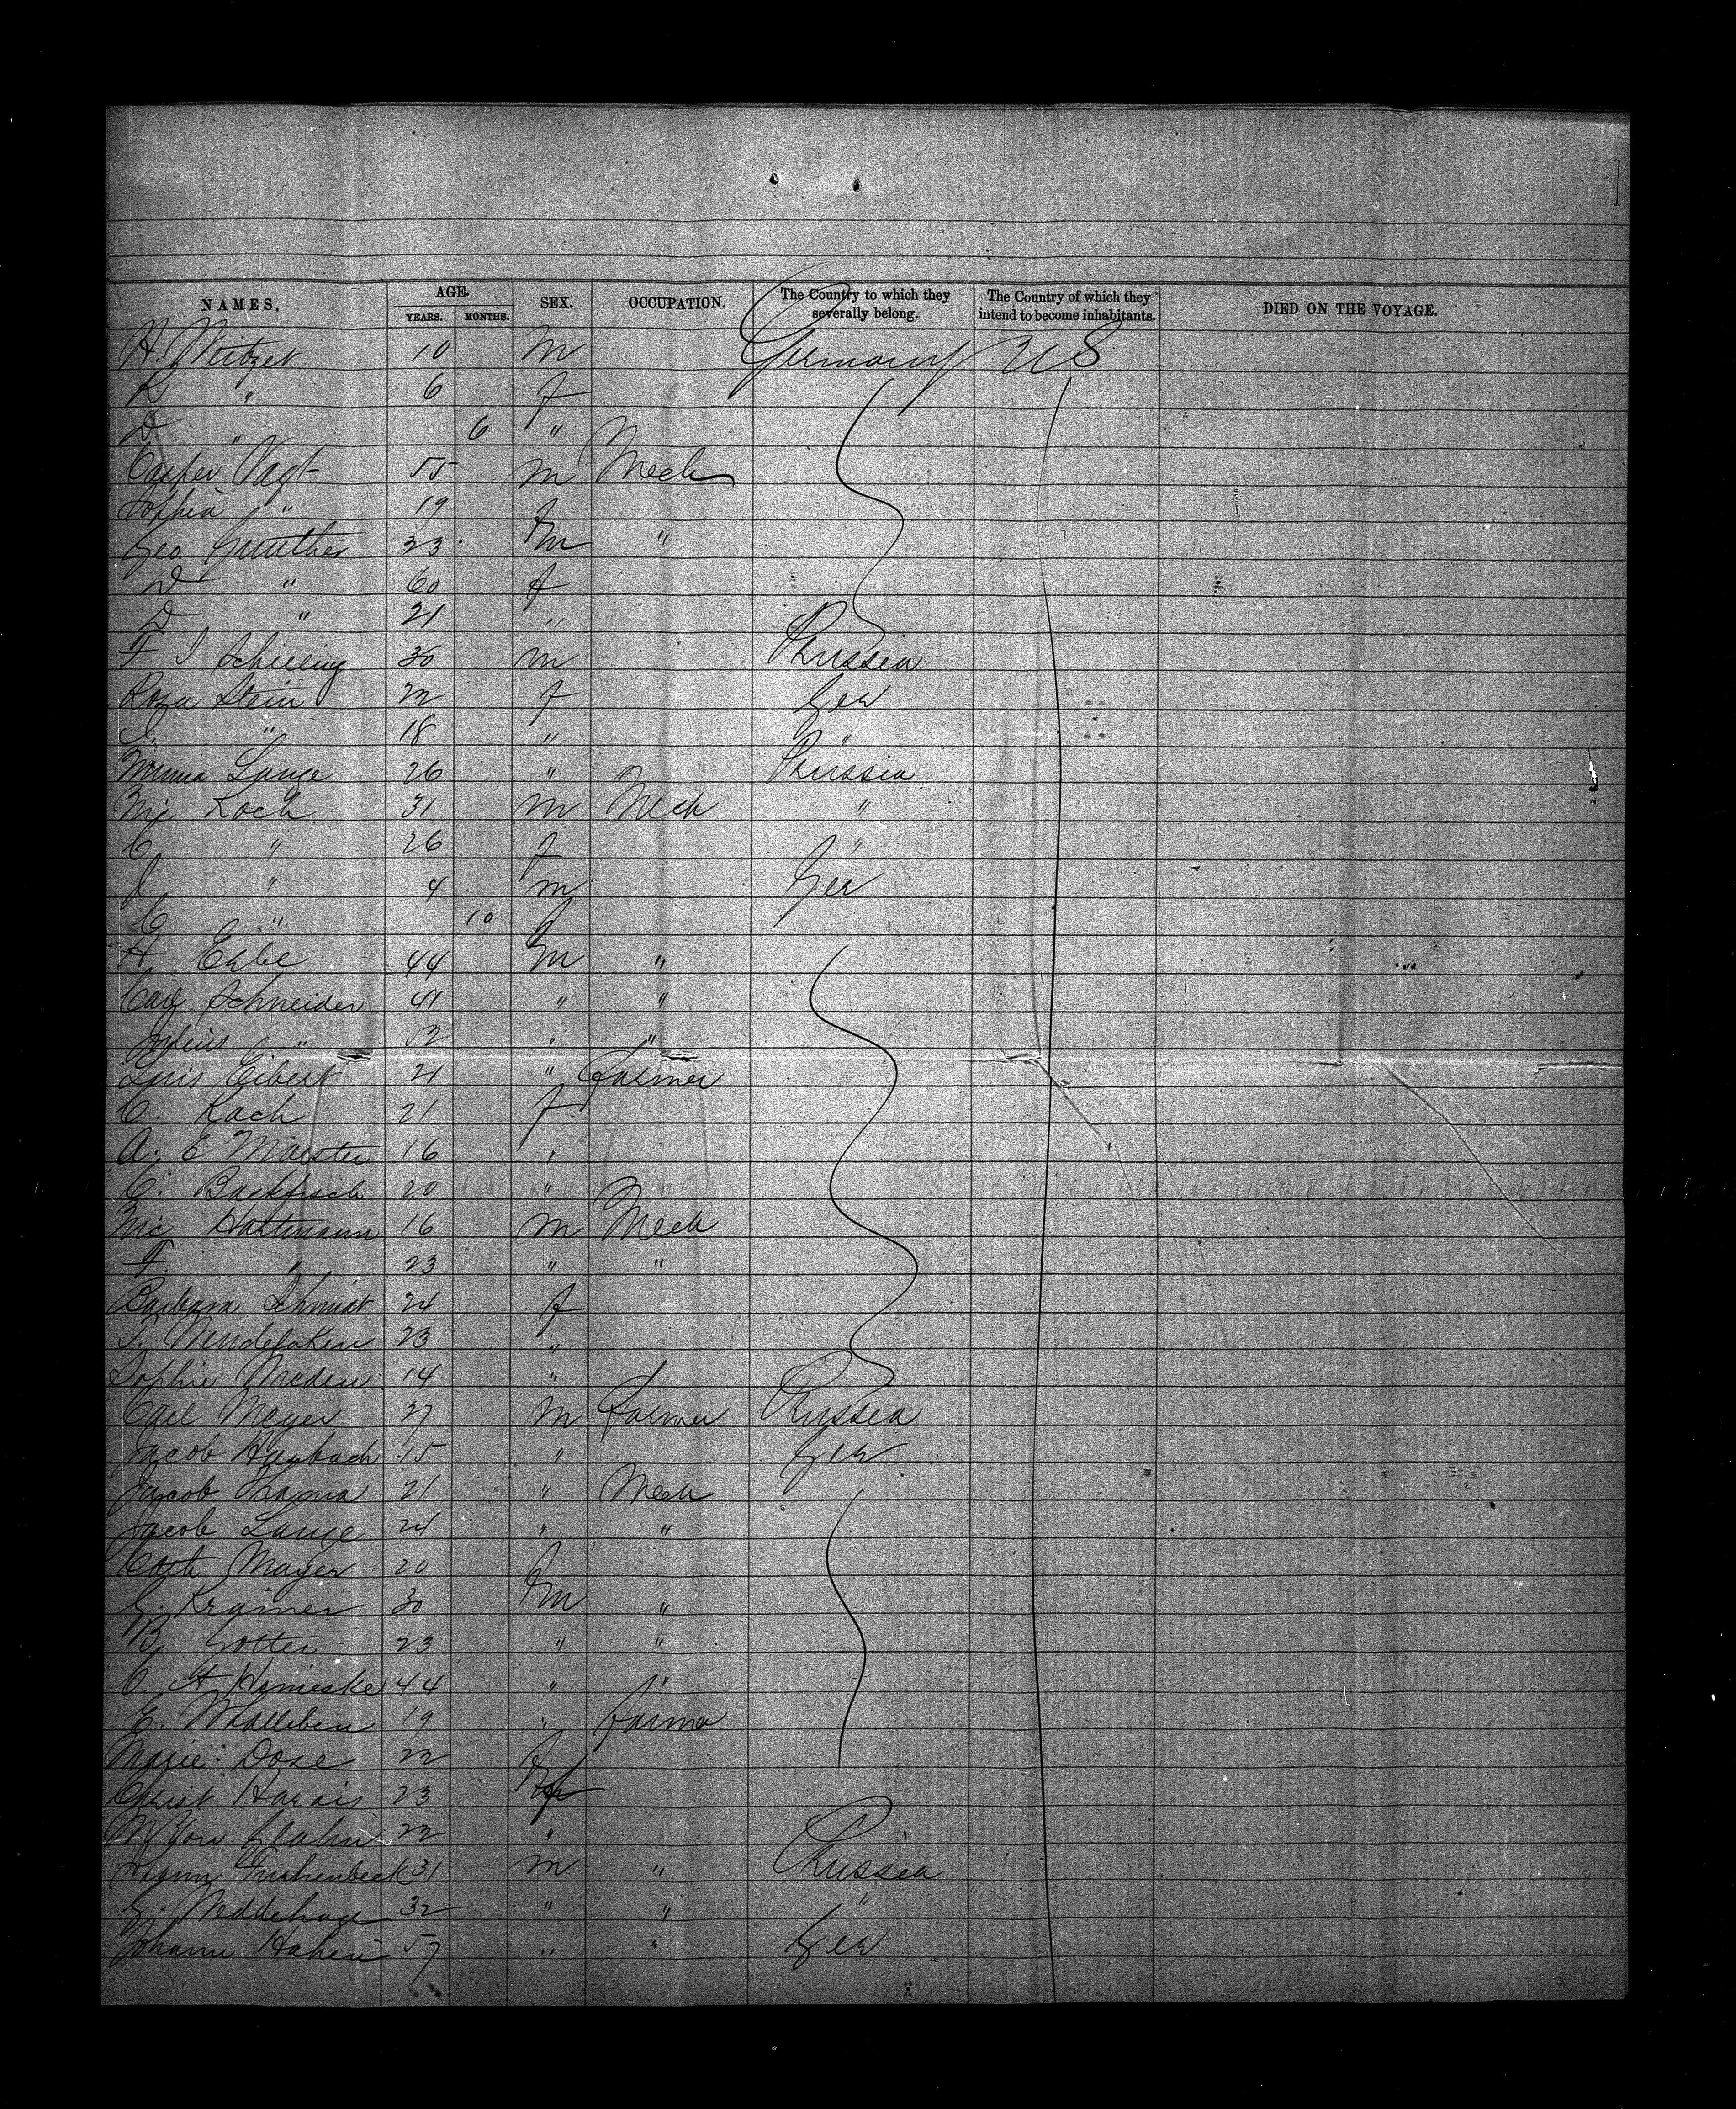 NAMES. AGE. YEARS. MONTHS. SEX. OCCUPATION. The Country to which they severally belong. The Country of which they intend to become inhabitants. DIED ON THE VOYAGE.
H. 10 m Germany U S
K " 6 f
D " 6 "
Casper Vagt 55 m Mech
Sophia " 19 f
Geo Gunther 33 m "
D " 60 f
D " 21 "
F J Schilling 30 m Prussia
Rosa Stein 22 f Ger
" 18 " "
Minna Lange 26 " Prussia
Nic Koch 31 m Mech "
C " 26 f "
J " 4 m Ger
C " 10 f
H 44 m "
Carl Schneider 41 " "
Julius " 52 " "
Luis Eibert 21 " Farmer
C. Koch 21 f
A. E Maister 16 "
C. Backfisch 20 "
Nic Hartmann 16 m Mech
F. " 23 " "
Barbara Schmidt 24 f
23 "
Sophie Meden 14 "
Carl Meyer 27 m Farmer Prussia
Jacob 15 " Ger
Jacob 21 " Mech
Jacob Lange 24 " "
Cath Mayer 20 f
G. Kramer 30 m "
B. Gotter 23 " "
C. H. 44 " "
E. 19 " Farmer
Marie Dose 22 f
Christ Harais 23 f
M Von Glahn 22 "
31 m " Prussia
G. Weddehage 32 " " "
Johann 57 " " Ger